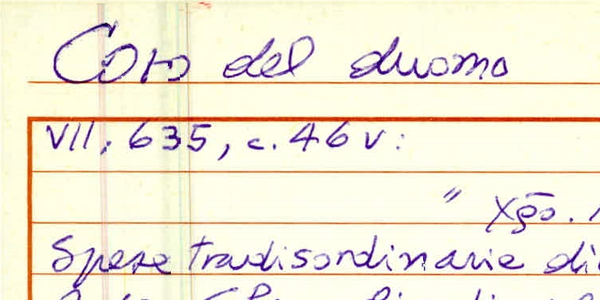 Coro del duomo
VII, 635, c. 46 v:
" Xp̄o.
Spese tradisordinarie di